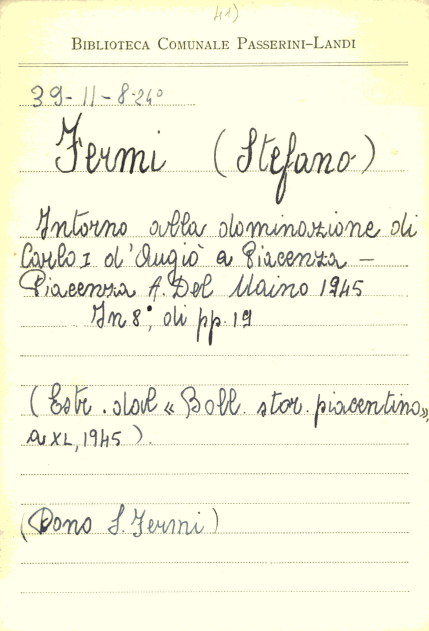 41)
BIBLIOTECA COMUNALE PASSERINI-LANDI
39-11-8-24°
Fermi (Stefano)
Intorno alla dominazione di
Carlo I d'Angiò a Piacenza –
Piacenza A. Del Maino 1945
In 8°, di pp. 19
(Estr. dal « Boll. stor. piacentino»,
a XL, 1945).
(Dono S. Fermi)